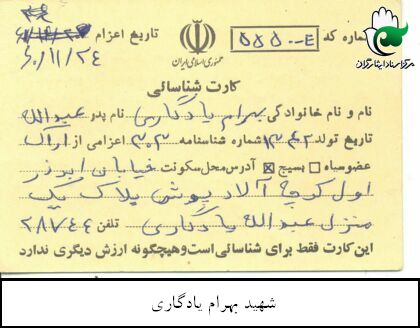 مرکز اسناد ایثارگران
شماره کد ۵۵۵۰۰-E
جمهوری اسلامی ایران
تاریخ اعزام
۶۰/۱۱/۲۴
کارت شناسائی
نام و نام خانوادگی بهرام یادگاری نام پدر عبدالله
تاریخ تولد ۱۳۴۲ شماره شناسنامه ۳۰۳ اعزامی از اراک
عضو سپاه □ بسیج ☒ آدرس محل سکونت خیابان ابوذر
اول کوچه آلادپوش پلاک یک
منزل عبدالله یادگاری تلفن ۲۸۷۴۴
این کارت فقط برای شناسائی است و هیچگونه ارزش دیگری ندارد
شهید بهرام یادگاری